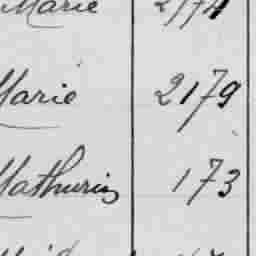 Marie 2174
Marie 2179
Mathurin 173